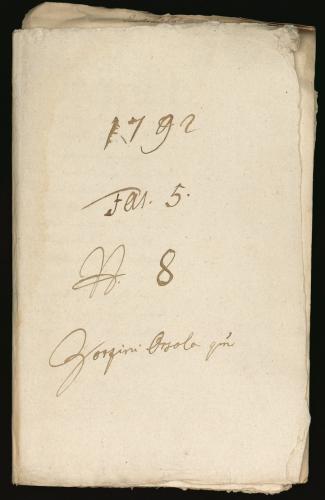 1792
Fas. 5.
N. 8
Zorzini Orsola qm